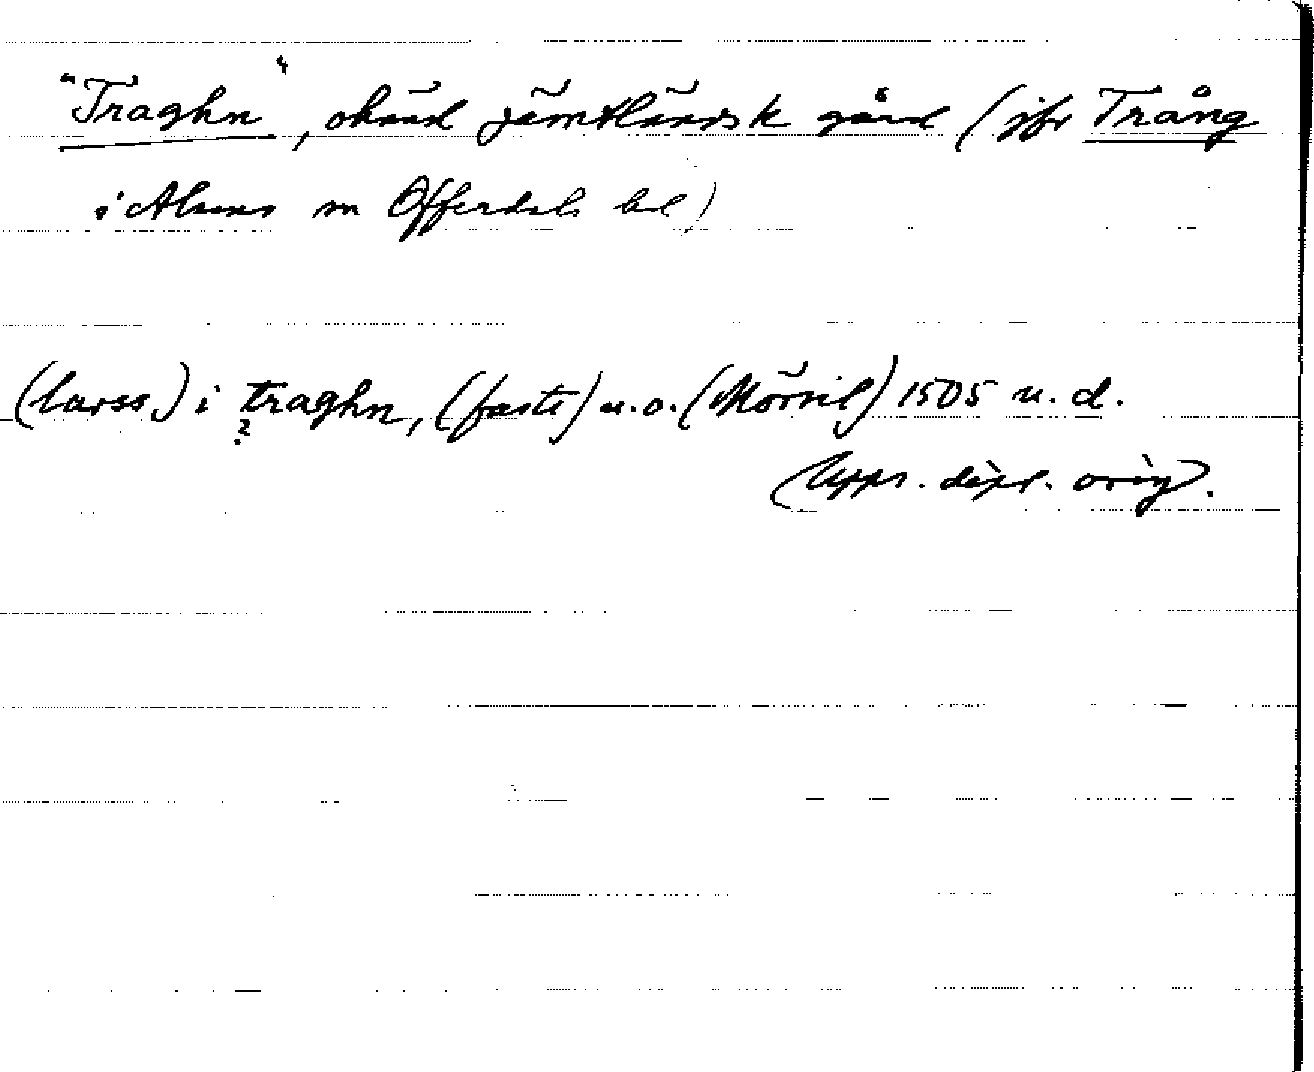 "Traghn", okänd jämtländsk gård (jfr Trång
i Alsens sn Offerdals bd)
(larss) i traghn, (faste) u.o. (Mörsil) 1505 u. d.
?
Upps. dipl. orig.